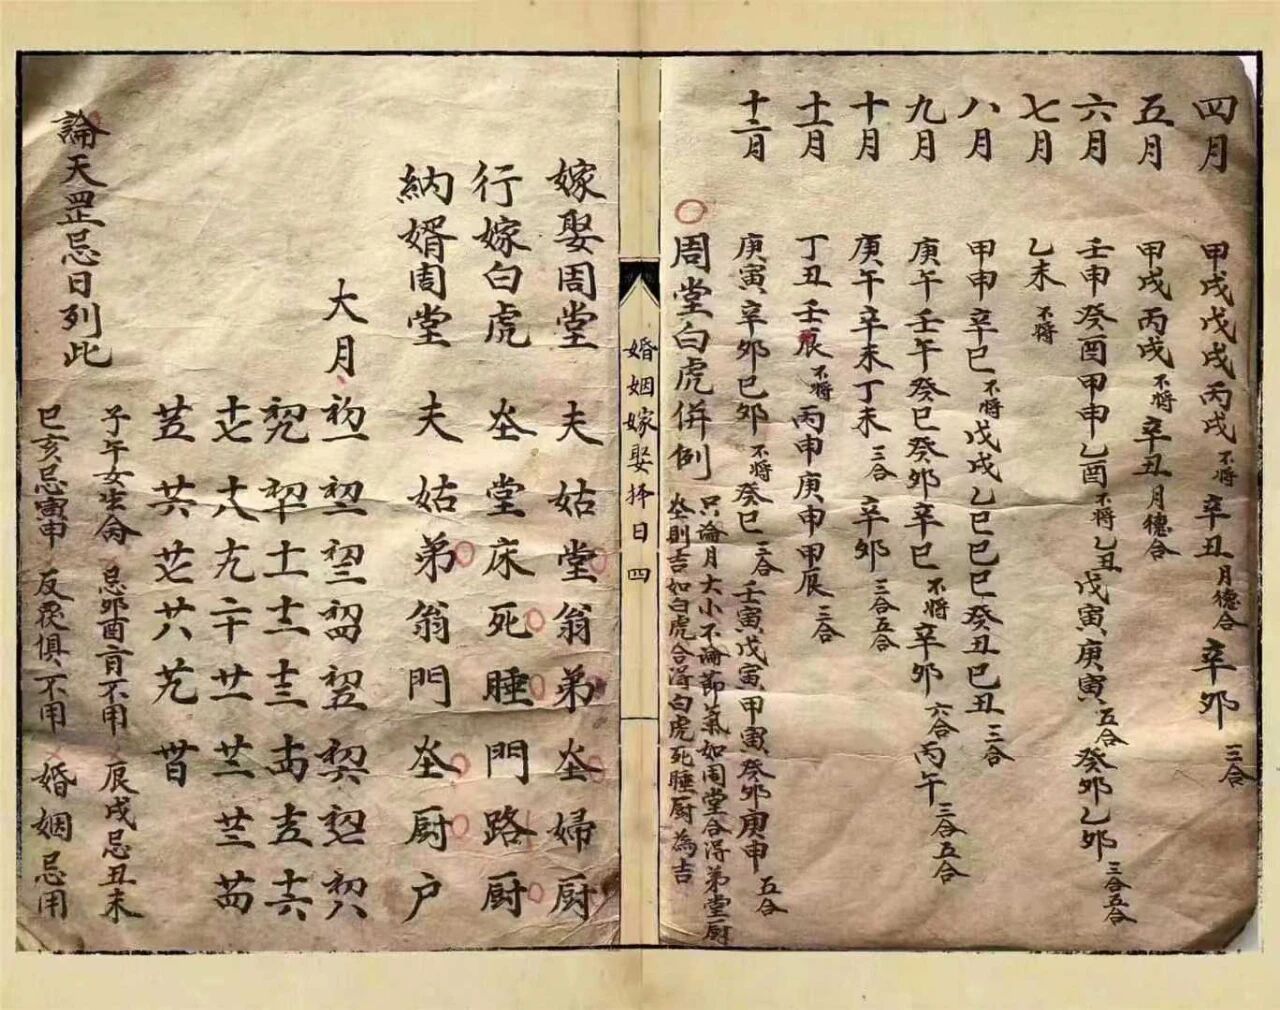 四月 甲戌戊戌丙戌不将辛丑月德合辛卯三合
五月 甲戌丙戌不将辛丑月德合
六月 壬申癸酉甲申乙酉不将乙丑戊寅庚寅五合癸卯乙卯三合五合
七月 乙未不将
八月 甲申辛巳不将戊戌乙巳己巳癸丑己丑三合
九月 庚午壬午癸巳癸卯辛巳不将辛卯六合丙午三合五合
十月 庚午辛未丁未三合辛卯三合五合
十一月 丁丑壬辰不将丙申庚申甲辰三合
十二月 庚寅辛卯己卯不将癸巳三合壬寅戊寅甲寅癸卯庚申五合
周堂白虎併例 只論月大小不論節氣如周堂合得弟堂厨
灶則吉如白虎合得白虎死睡厨為吉
婚姻嫁娶择日四
嫁娶周堂 夫姑堂翁弟灶婦厨
行嫁白虎 灶堂床死睡門路厨
納婿周堂 夫姑弟翁門灶厨户
大月 初一 初二 初三 初四 初五 初六 初七 初八
初九 初十 十一 十二 十三 十四 十五 十六
十七 十八 十九 二十 廿一 廿二 廿三 廿四
廿五 廿六 廿七 廿八 廿九 三十
論天罡忌日列此
子午女生命 忌卯酉肓不用 辰戌忌丑未
巳亥忌寅申 反覆俱不用 婚姻忌用